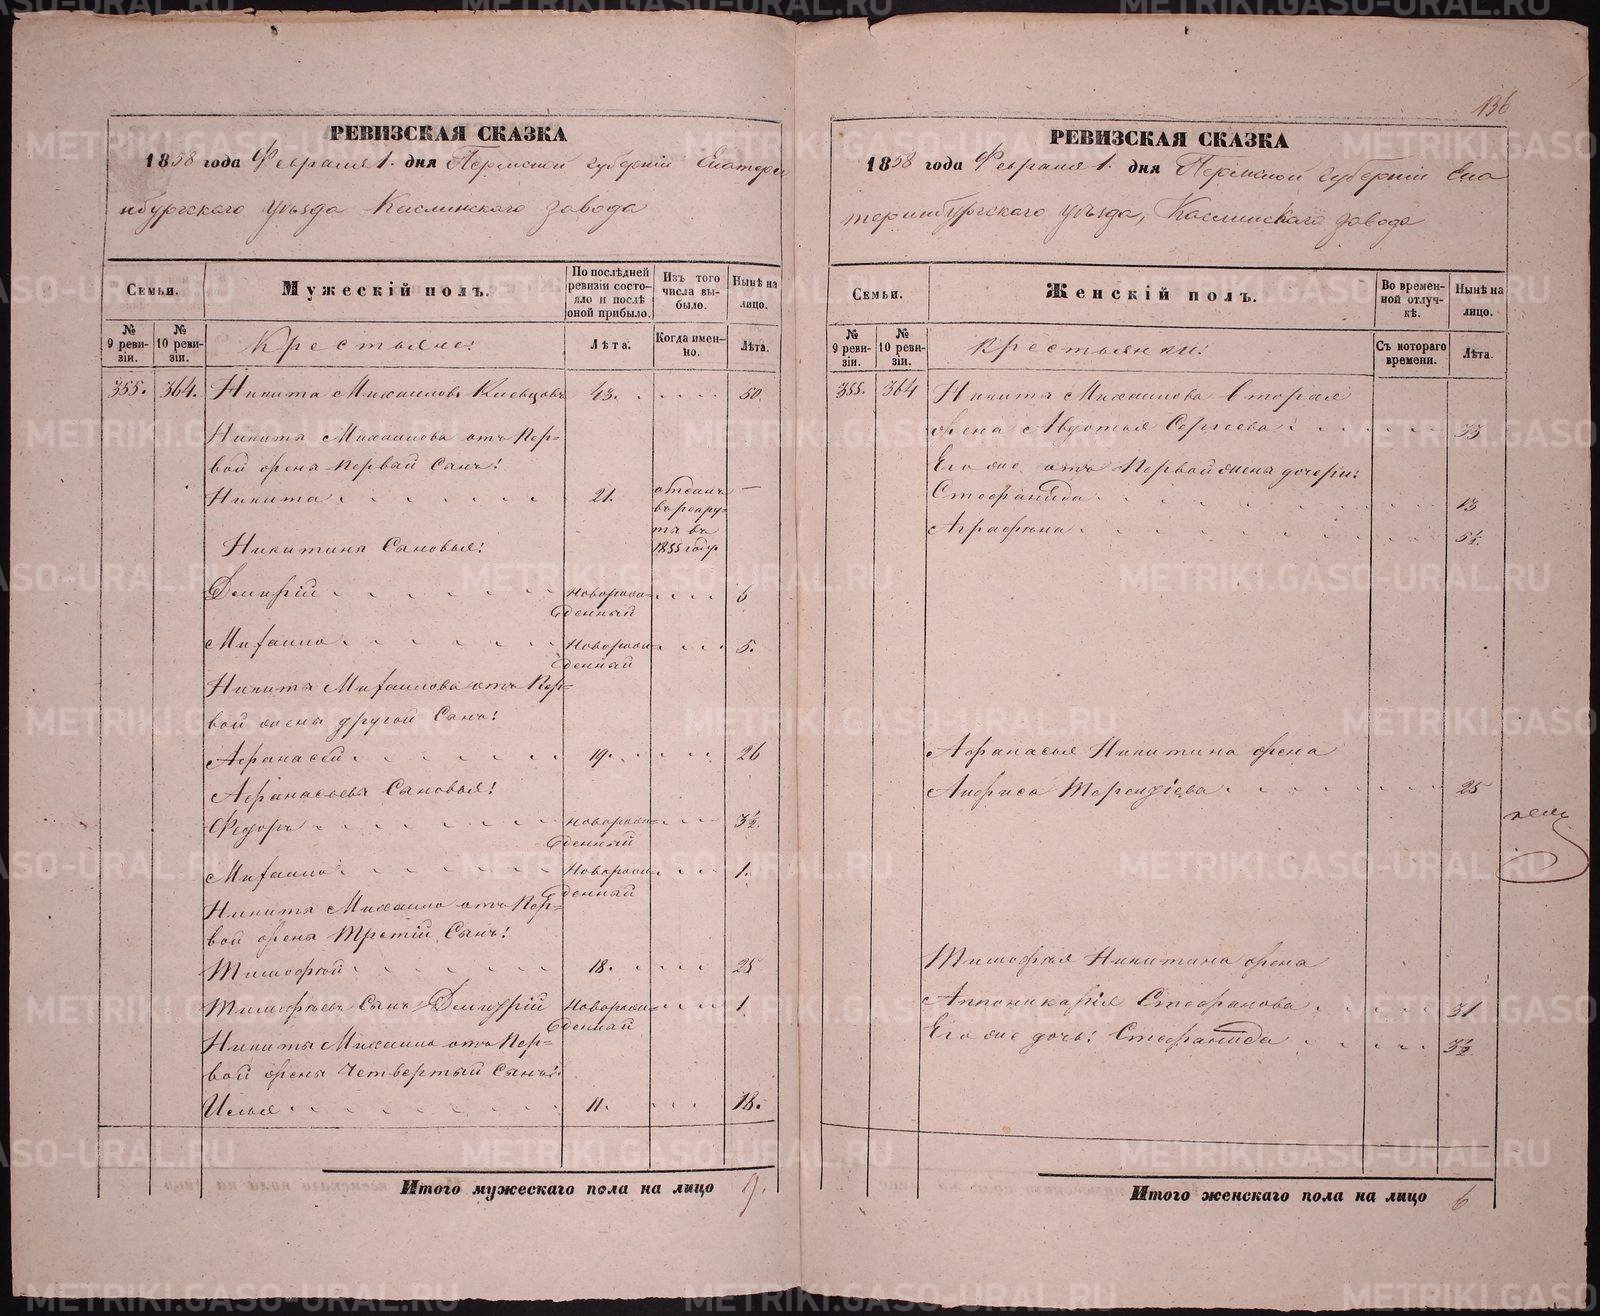 РЕВИЗСКАЯ СКАЗКА
1858 года Февраля 1. дня Пермской губерніи Екатери
нбургскаго уѣзда Каслинскаго завода
Семьи.
Мужескій полъ.
По послѣдней ревизіи состояло и послѣ оной прибыло.
Изъ того числа выбыло.
Нынѣ на лицо.
№ 9 ревизіи.
№ 10 ревизіи.
Крестьяне:
Лѣта.
Когда именно.
Лѣта.
355. 364. Никита Михаиловъ 43. 50.
Никиты Михаилова отъ Пер=
вой жены первый сынъ:
Никита 21. отданъ в рекруты въ 1855 году —
Никитины Сыновья:
Дмитрій Новорожденный 6
Михаило Новорожденный 5.
Никиты Михаилова отъ Пер=
вой жены другой Сынъ:
Афанасей 19. 26
Афанасьевы Сыновья:
Федоръ Новорожденный 3½.
Михаило Новорожденный 1.
Никиты Михаило отъ Пер=
вой жены Третій Сынъ:
Тимофей 18. 25
Тимофеевъ Сынъ Дмитрій Новорожденный 1
Никиты Михаило отъ Пер=
вой жены Четвертый Сынъ:
Илья 11. 18.
Итого мужескаго пола на лицо 9.
136
РЕВИЗСКАЯ СКАЗКА
1858 года Февраля 1. дня Пермской губерніи Ека
теринбургскаго уѣзда, Каслинскаго завода
Семьи.
Женскій полъ.
Во временной отлучкѣ.
Нынѣ на лицо.
№ 9 ревизіи.
№ 10 ревизіи.
Крестьянки:
Съ котораго времени.
Лѣта.
355. 364 Никиты Михаилова Вторая
жена Авдотья Сергеева: 33
Его же отъ Первой жены дочери:
Стефанида 13
Аграфена 5½.
Афанасья Никитина жена
Анфиса Терентіева 25
Тимофея Никитина жена
Апполинарія Стефанова 31
Его же дочь: Стефанида 3½
Итого женскаго пола на лицо 6
METRIKI.GASO-URAL.RU